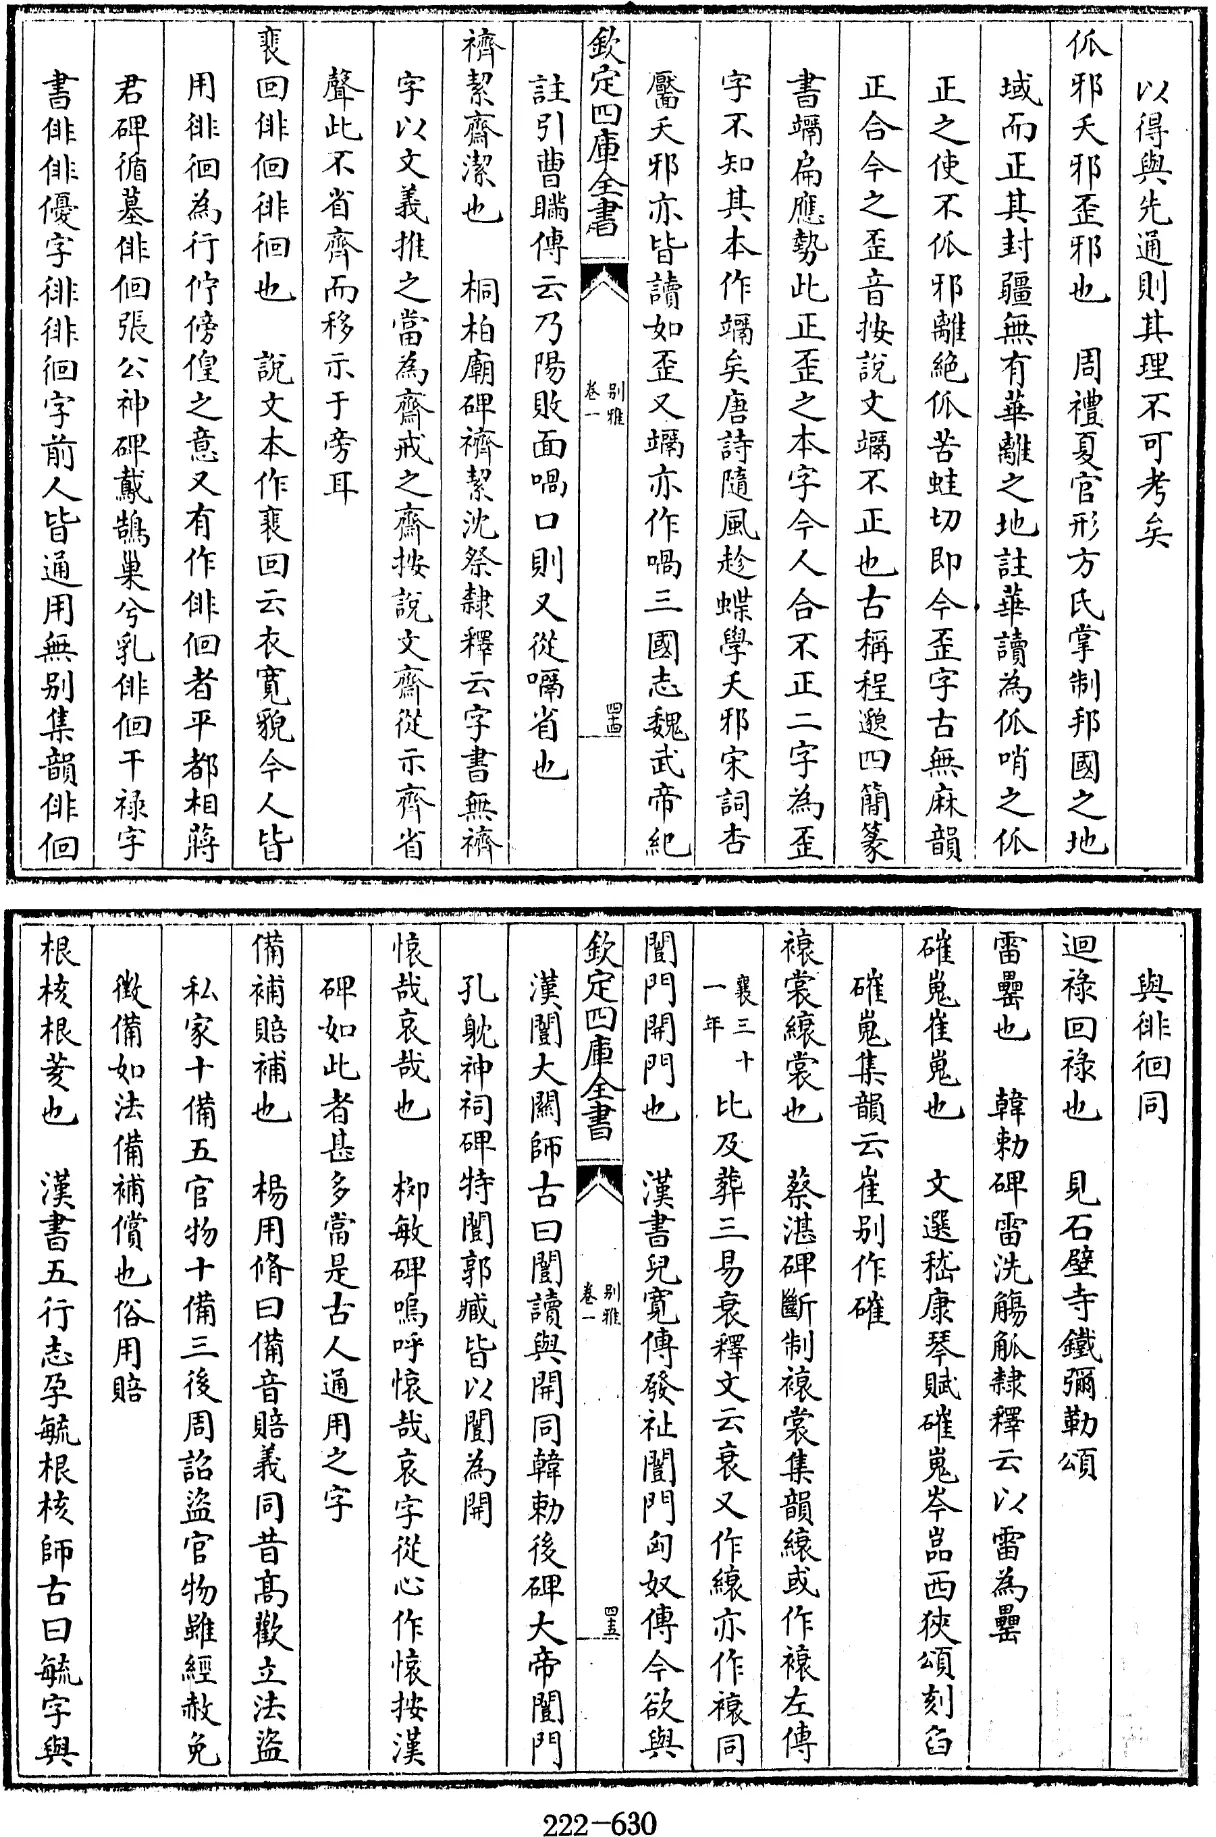 以得與先通則其理不可考矣
㑶邪夭邪歪邪也　周禮夏官形方氏掌制邦國之地
域而正其封疆無有華離之地註華讀為㑶哨之㑶
正之使不㑶邪離絶㑶苦蛙切即今歪字古無麻韻
正合今之歪音按說文竵不正也古稱程邈四簡篆
書竵扁應勢此正歪之本字今人合不正二字為歪
字不知其本作竵矣唐詩隨風趁蝶學夭邪宋詞杏
靨夭邪亦皆讀如歪又竵亦作喎三國志魏武帝紀
欽定四庫全書　别雅　卷一　四十四
註引曹瞞傳云乃陽敗面喎口則又從咼省也
䄢絜齋潔也　桐柏廟碑䄢絜沈祭隸釋云字書無䄢
字以文義推之當為齋戒之齋按說文齋從示齊省
聲此不省齊而移示于旁耳
裵回俳佪徘徊也　說文本作裵回云衣寬貌今人皆
用徘徊為行佇傍偟之意又有作俳佪者平都相蔣
君碑循墓俳佪張公神碑䴡鵲巢兮乳俳佪干禄字
書俳俳優字徘徘徊字前人皆通用無别集韻俳佪
與徘徊同
迴祿回祿也　見石壁寺鐵彌勒頌
雷罍也　韓勅碑雷洗觴觚隸釋云以雷為罍
磪嵬崔嵬也　文選嵇康琴賦磪嵬岑嵓西狹頌刻臽
磪嵬集韻云崔别作磪
䙚裳縗裳也　蔡湛碑斷制䙚裳集韻縗或作䙚左傳
襄三十一年比及葬三易衰釋文云衰又作縗亦作䙚同
闓門開門也　漢書兒寛傳發祉闓門匈奴傳今欲與
欽定四庫全書　别雅　卷一　四十五
漢闓大關師古曰闓讀與開同韓勅後碑大帝闓門
孔耽神祠碑特闓郭臧皆以闓為開
㥆哉哀哉也　柳敏碑嗚呼㥆哉哀字從心作㥆按漢
碑如此者甚多當是古人通用之字
備補賠補也　楊用脩曰備音賠義同昔高歡立法盜
私家十備五官物十備三後周詔盜官物雖經赦免
徵備如法備補償也俗用賠
根核根荄也　漢書五行志孕毓根核師古曰毓字與
222-630